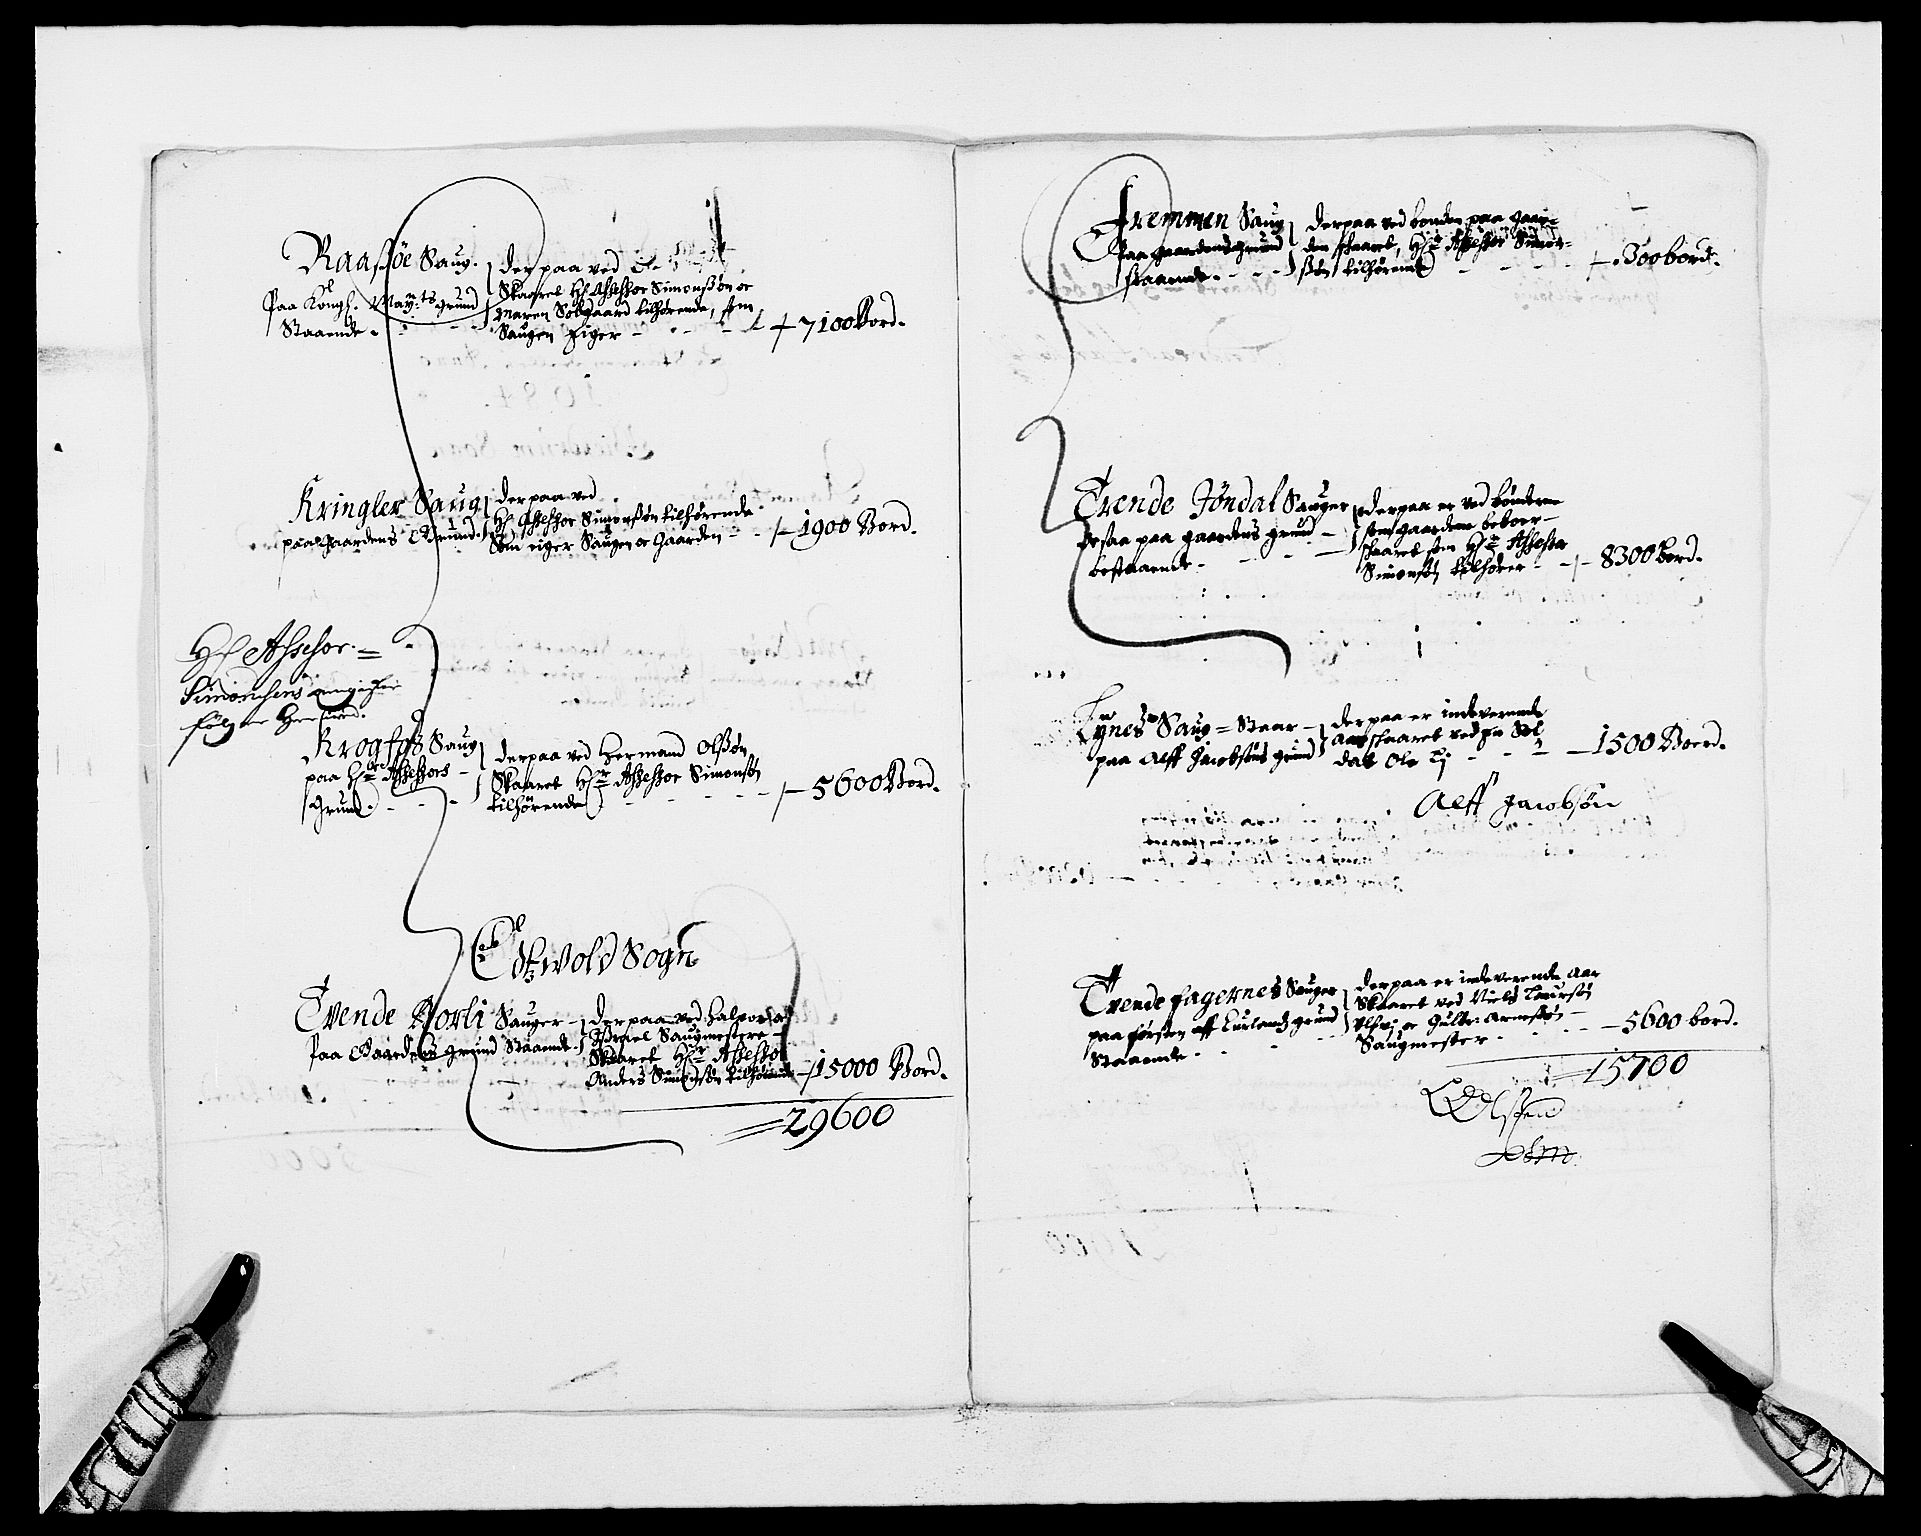 Raasøe Saug.
Paa Kongl. May:ts grund
Staaende.
Der paa ved
Skaaret Hr Assessor Simonssøn oc
Maren Solgaard tilhørende, som
Saugen Eiger
7100 Bord.
Kringler Saug
paa Gaardens Grund.
Der paa ved
Hr Assessor Simonssøn tilhørende
Som eiger Saugen oc Gaarden
1900 Bord.
Hr Assessor
Simonsens
følger
Krogfos Saug
paa Hr Assessors
Grund.
derpaa ved Hermand Olssøn
Skaaret Hr Assessor Simonsøn
tilhørende
5600 Bord.
Edtzwold Sogn
Tvende Dorli Sauger
Paa Gaardens grund Staaende.
Der paa ved Halvor
Saugmestere
Skaaret Hr Assessor
Anders Simonsøn tilhørende
15000 Bord.
29600
Tremmen Saug
Paa gaardens grund
staaende.
Derpaa ved bonden paa gaar-
den skaaret, Hr Assessor Simon-
søn tilhørende
300 bord.
Tvende Jøndal Sauger
Desaa paa gaardens grund
bestaaende.
derpaa er ved bønderne
som gaardene beboer
skaaret som Hr Assessor
Simonsøn tilhører
8300 Bord.
Saug Staar
paa Alff Jacobsøns grund
der paa er indeverende
aar skaaret ved en Sol
dat Ole
1500 Bord.
Alff Jacobsøn
Tvende fagernes Sauger
paa første aff grund
Staaende
derpaa er indeverende Aar
Skaaret ved Niels Laursøn
oc
Saugmester.
5600 bord.
15700